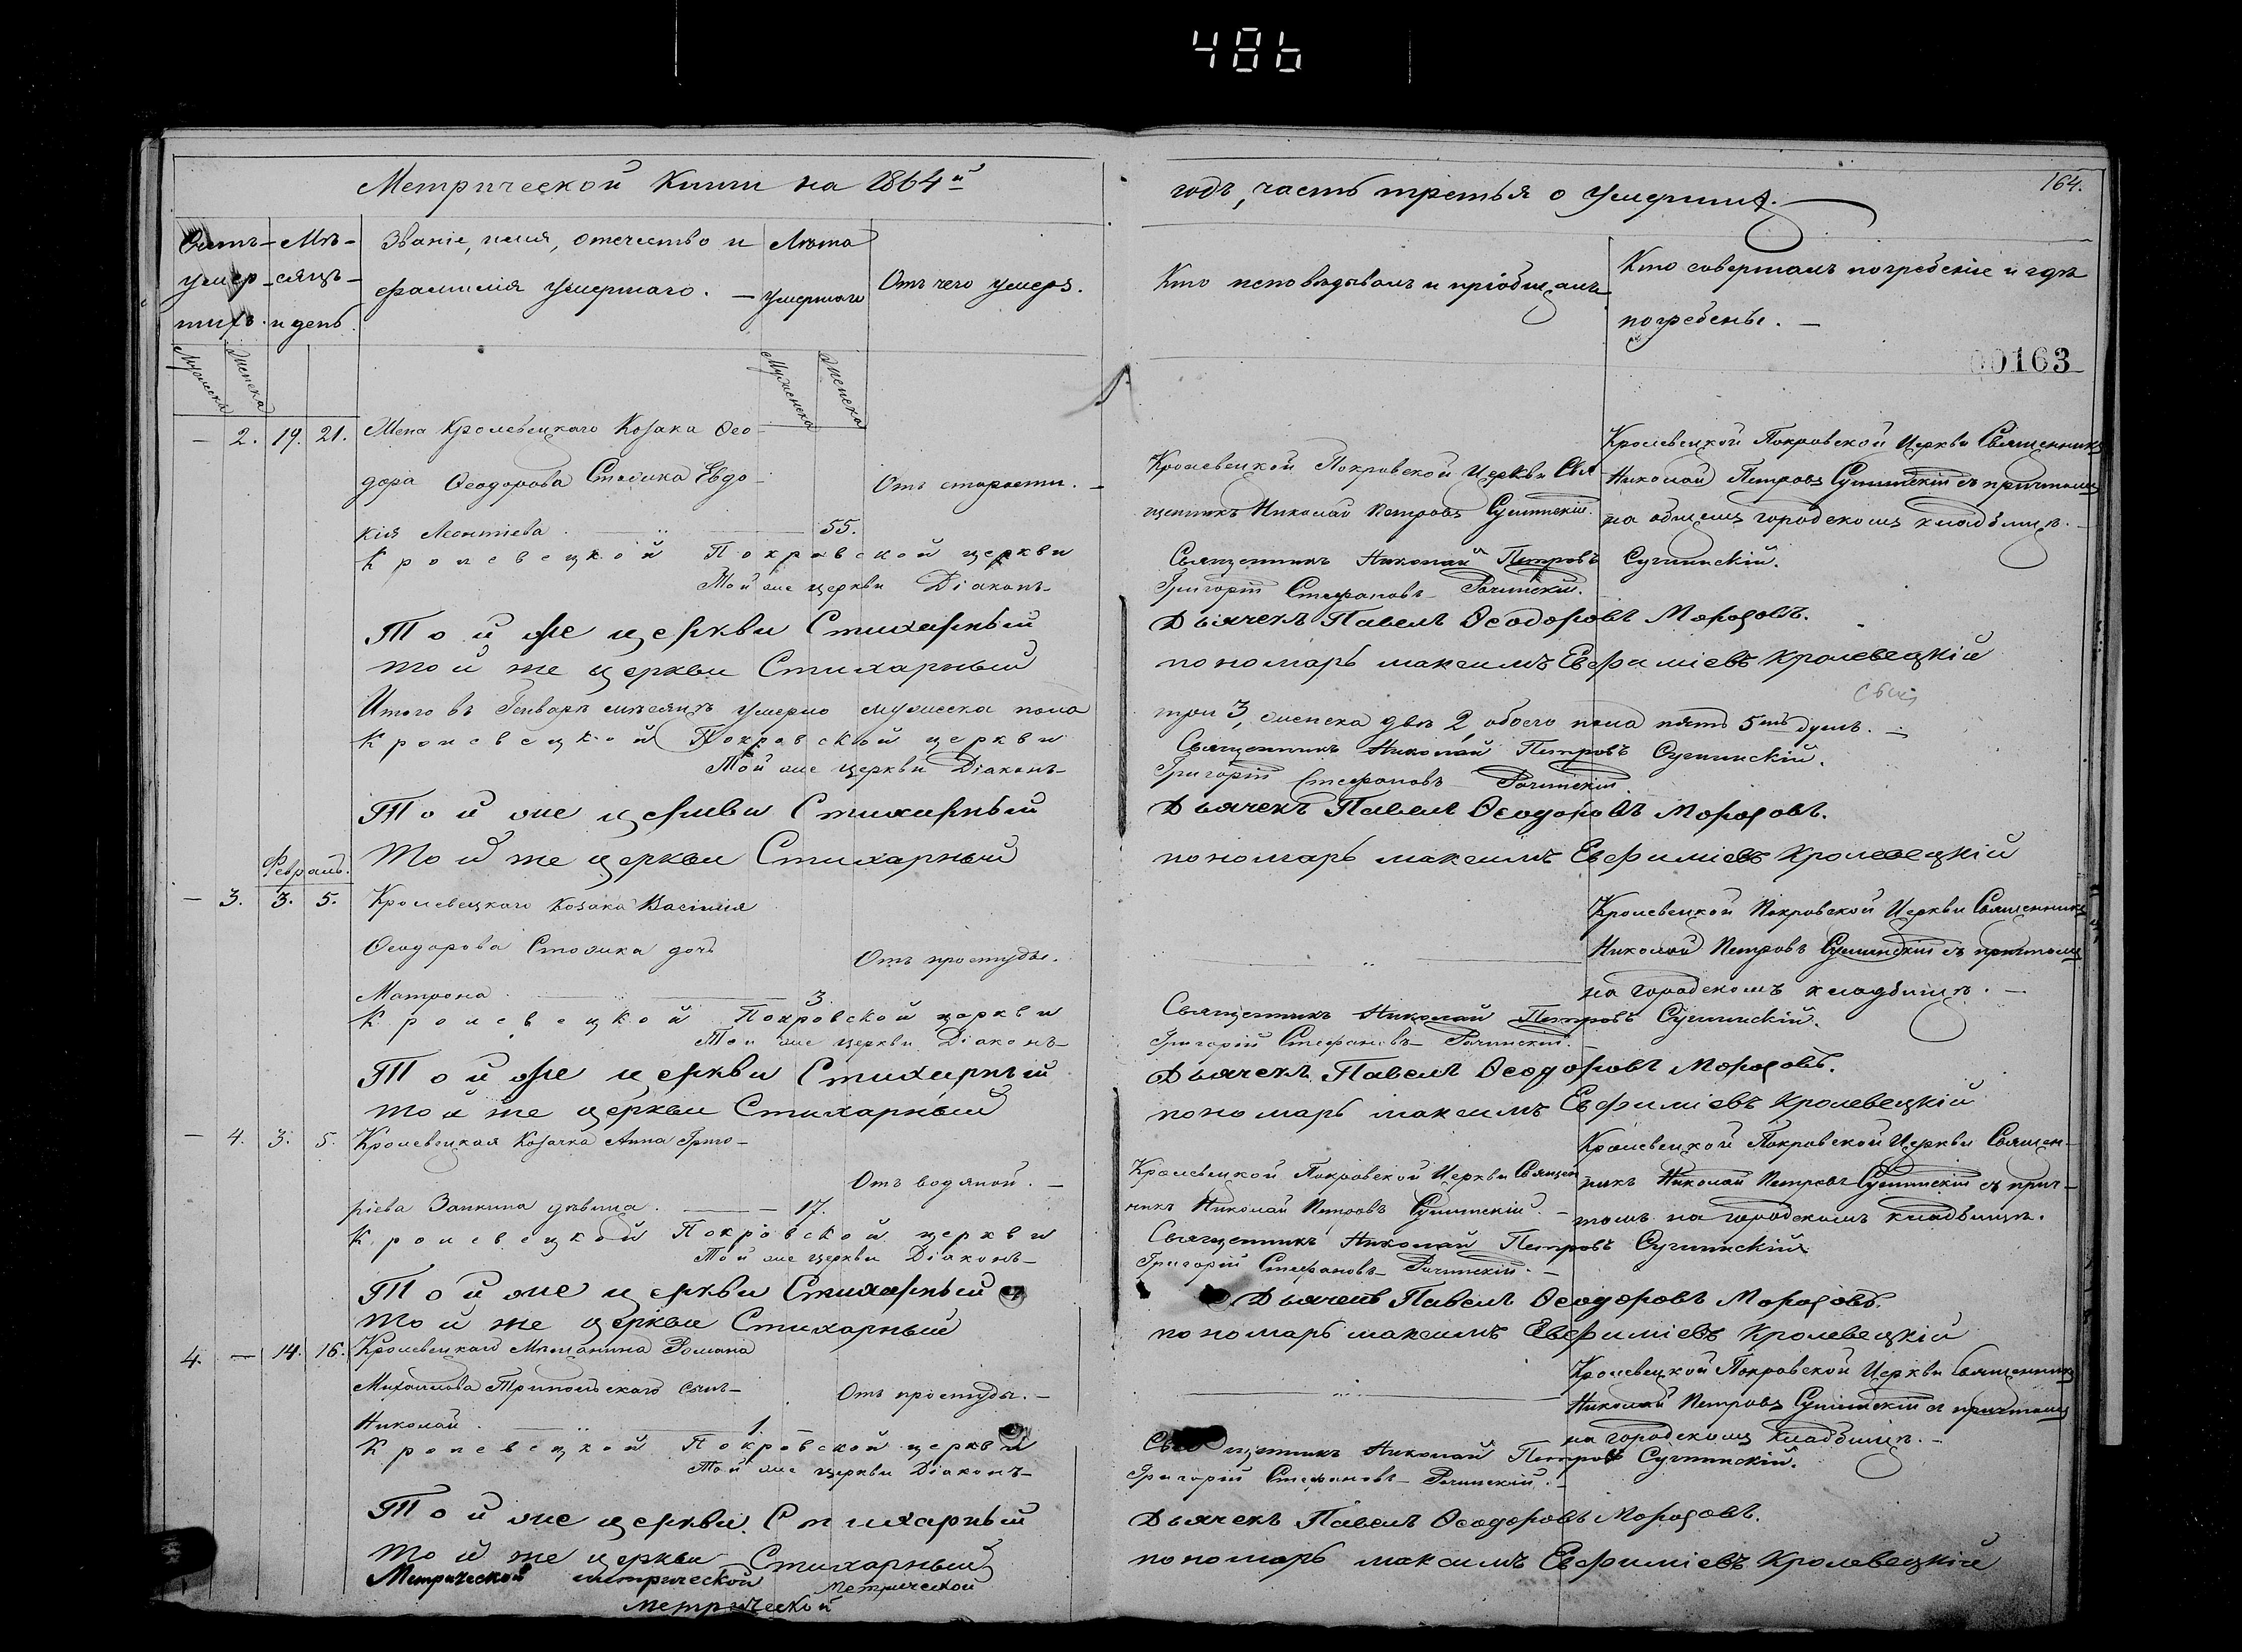 486
Метрической Книги на 1864й
годъ, часть третья о умершихъ.
164.
Счетъ умершихъ.
Мѣсяцъ и день.
Званіе, имя, отечество и фамилія умершаго.
Лѣта умершаго
Отъ чего умеръ.
Кто исповѣдывалъ и пріобщалъ
Кто совершалъ погребеніе и гдѣ погребены.
00163
Мужеска
Женска
Мужеска
Женска
— 2. 19. 21.
Жена Кролевецкаго Козака Ѳео
дора Ѳеодорова Стожика Евдо
кія Леонтіева 55.
Отъ старости.
Кролевецкой Покровской Церкви Свя
щенникъ Николай Петровъ Сучинскій.
Кролевецкой Покровской Церкви Священникъ
Николай Петровъ Сучинскій съ причтомъ
на общемъ городскомъ кладбищѣ.
Кролевецкой Покровской церкви Священникъ Николай Петровъ Сучинскій.
Той же церкви Діаконъ Григорій Стефановъ
Той же церкви Стихарный Дьячекъ Павелъ Ѳеодоровъ Морозовъ.
той же церкви Стихарный пономарь максимъ Евфиміевъ Кролевецкій
Итого въ Генварѣ мѣсяцѣ умерло мужеска пола три 3, женска двѣ 2, обоего пола пять 5ть душъ.
Кролевецкой Покровской церкви Священникъ Николай Петровъ Сучинскій.
Той же церкви Діаконъ Григорій Стефановъ
Той же церкви Стихарный Дьячекъ Павелъ Ѳеодоровъ Морозовъ.
той же церкви Стихарный пономарь максимъ Евфиміевъ Кролевецкій
Февраль.
— 3. 3. 5.
Кролевецкаго Козака Василія
Ѳеодорова Стожика дочь
Матрона 3.
Отъ простуды.
Кролевецкой Покровской Церкви Священникъ
Николай Петровъ Сучинскій съ причтомъ
на городскомъ кладбищѣ.
Кролевецкой Покровской церкви Священникъ Николай Петровъ Сучинскій.
Той же церкви Діаконъ Григорій Стефановъ
Той же церкви Стихарный Дьячекъ Павелъ Ѳеодоровъ Морозовъ.
той же церкви Стихарный пономарь максимъ Евфиміевъ Кролевецкій
— 4. 3. 5.
Кролевецкая Козачка Анна Григо
ріева Заикина дѣвица. 17.
Отъ водяной.
Кролевецкой Покровской Церкви Священ
никъ Николай Петровъ Сучинскій.
Кролевецкой Покровской Церкви Священ
никъ Николай Петровъ Сучинскій съ прич
томъ на городскомъ кладбищѣ.
Кролевецкой Покровской церкви Священникъ Николай Петровъ Сучинскій.
Той же церкви Діаконъ Григорій Стефановъ
Той же церкви Стихарный Дьячекъ Павелъ Ѳеодоровъ Морозовъ.
той же церкви Стихарный пономарь максимъ Евфиміевъ Кролевецкій
4. — 14. 16.
Кролевецкаго Мѣщанина Романа
Михайлова Трипольскаго сынъ
Николай 1.
Отъ простуды.
Кролевецкой Покровской Церкви Священникъ
Николай Петровъ Сучинскій съ причтомъ
на городскомъ кладбищѣ.
Кролевецкой Покровской церкви Священникъ Николай Петровъ Сучинскій.
Той же церкви Діаконъ Григорій Стефановъ
Той же церкви Стихарный Дьячекъ Павелъ Ѳеодоровъ Морозовъ.
той же церкви Стихарный пономарь максимъ Евфиміевъ Кролевецкій
Метрической метрической метрической
метрической